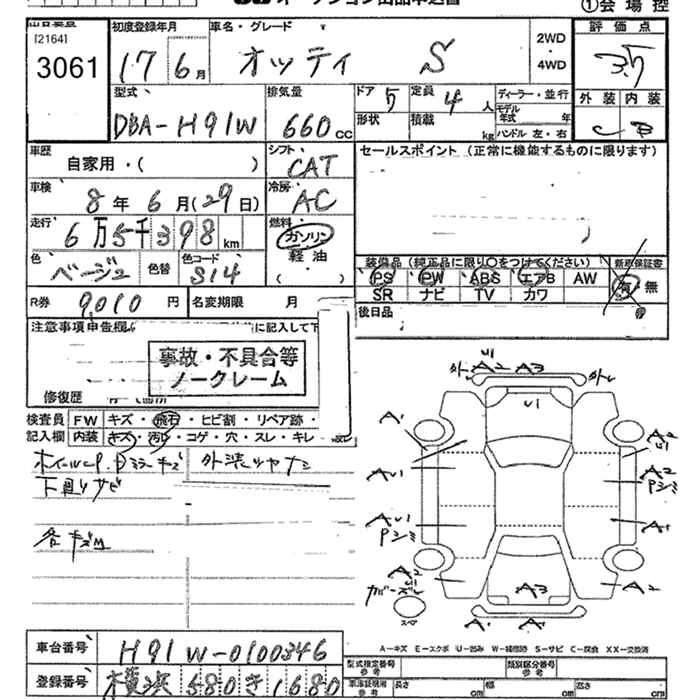 オークション出品申込書
①会場控
[2164]
3061
初度登録年月 車名・グレード
17 6月 オッティ S
2WD
・
4WD
評価点
3.5
外装 内装
C B
型式 排気量
DBA-H91W 660cc
ドア 5 定員 4人
形状 積載 kg
ディーラー・並行
モデル年式 年
ハンドル 左・右
車歴
自家用・( )
シフト
CAT
セールスポイント (正常に機能するものに限ります)
車検
8年 6月(29日)
冷房
AC
走行
6万5千398km
燃料
ガソリン
軽油
( )
色 ベージュ 色替 色コード S14
装備品 (純正品に限り○をつけてください)
新車保証書
PS PW ABS エアB AW
SR ナビ TV カワ
有・無
R券 9,010円 名変期限 月
後日品
注意事項申告欄
に記入して下
事故・不具合等
ノークレーム
修復歴
検査員
記入欄
FW キズ・飛石・ヒビ割・リペア跡・
内装 キズ・汚れ・コゲ・穴・スレ・キレ
外装ツヤナシ
下廻りサビ
各キズ
U1
A2 A3
U1
A'
AU1
AU1
A2
A2
A1
A2
A3
A' A'
スペア
A-キズ E-エクボ U-凹み W-補修跡 S-サビ C-腐食 XX-交換済
車台番号 H91W-0100346
登録番号 横浜 580 き 1680
型式指定番号
参考
類別区分番号
参考
車庫証明用
参考
長さ cm 幅 cm 高さ cm